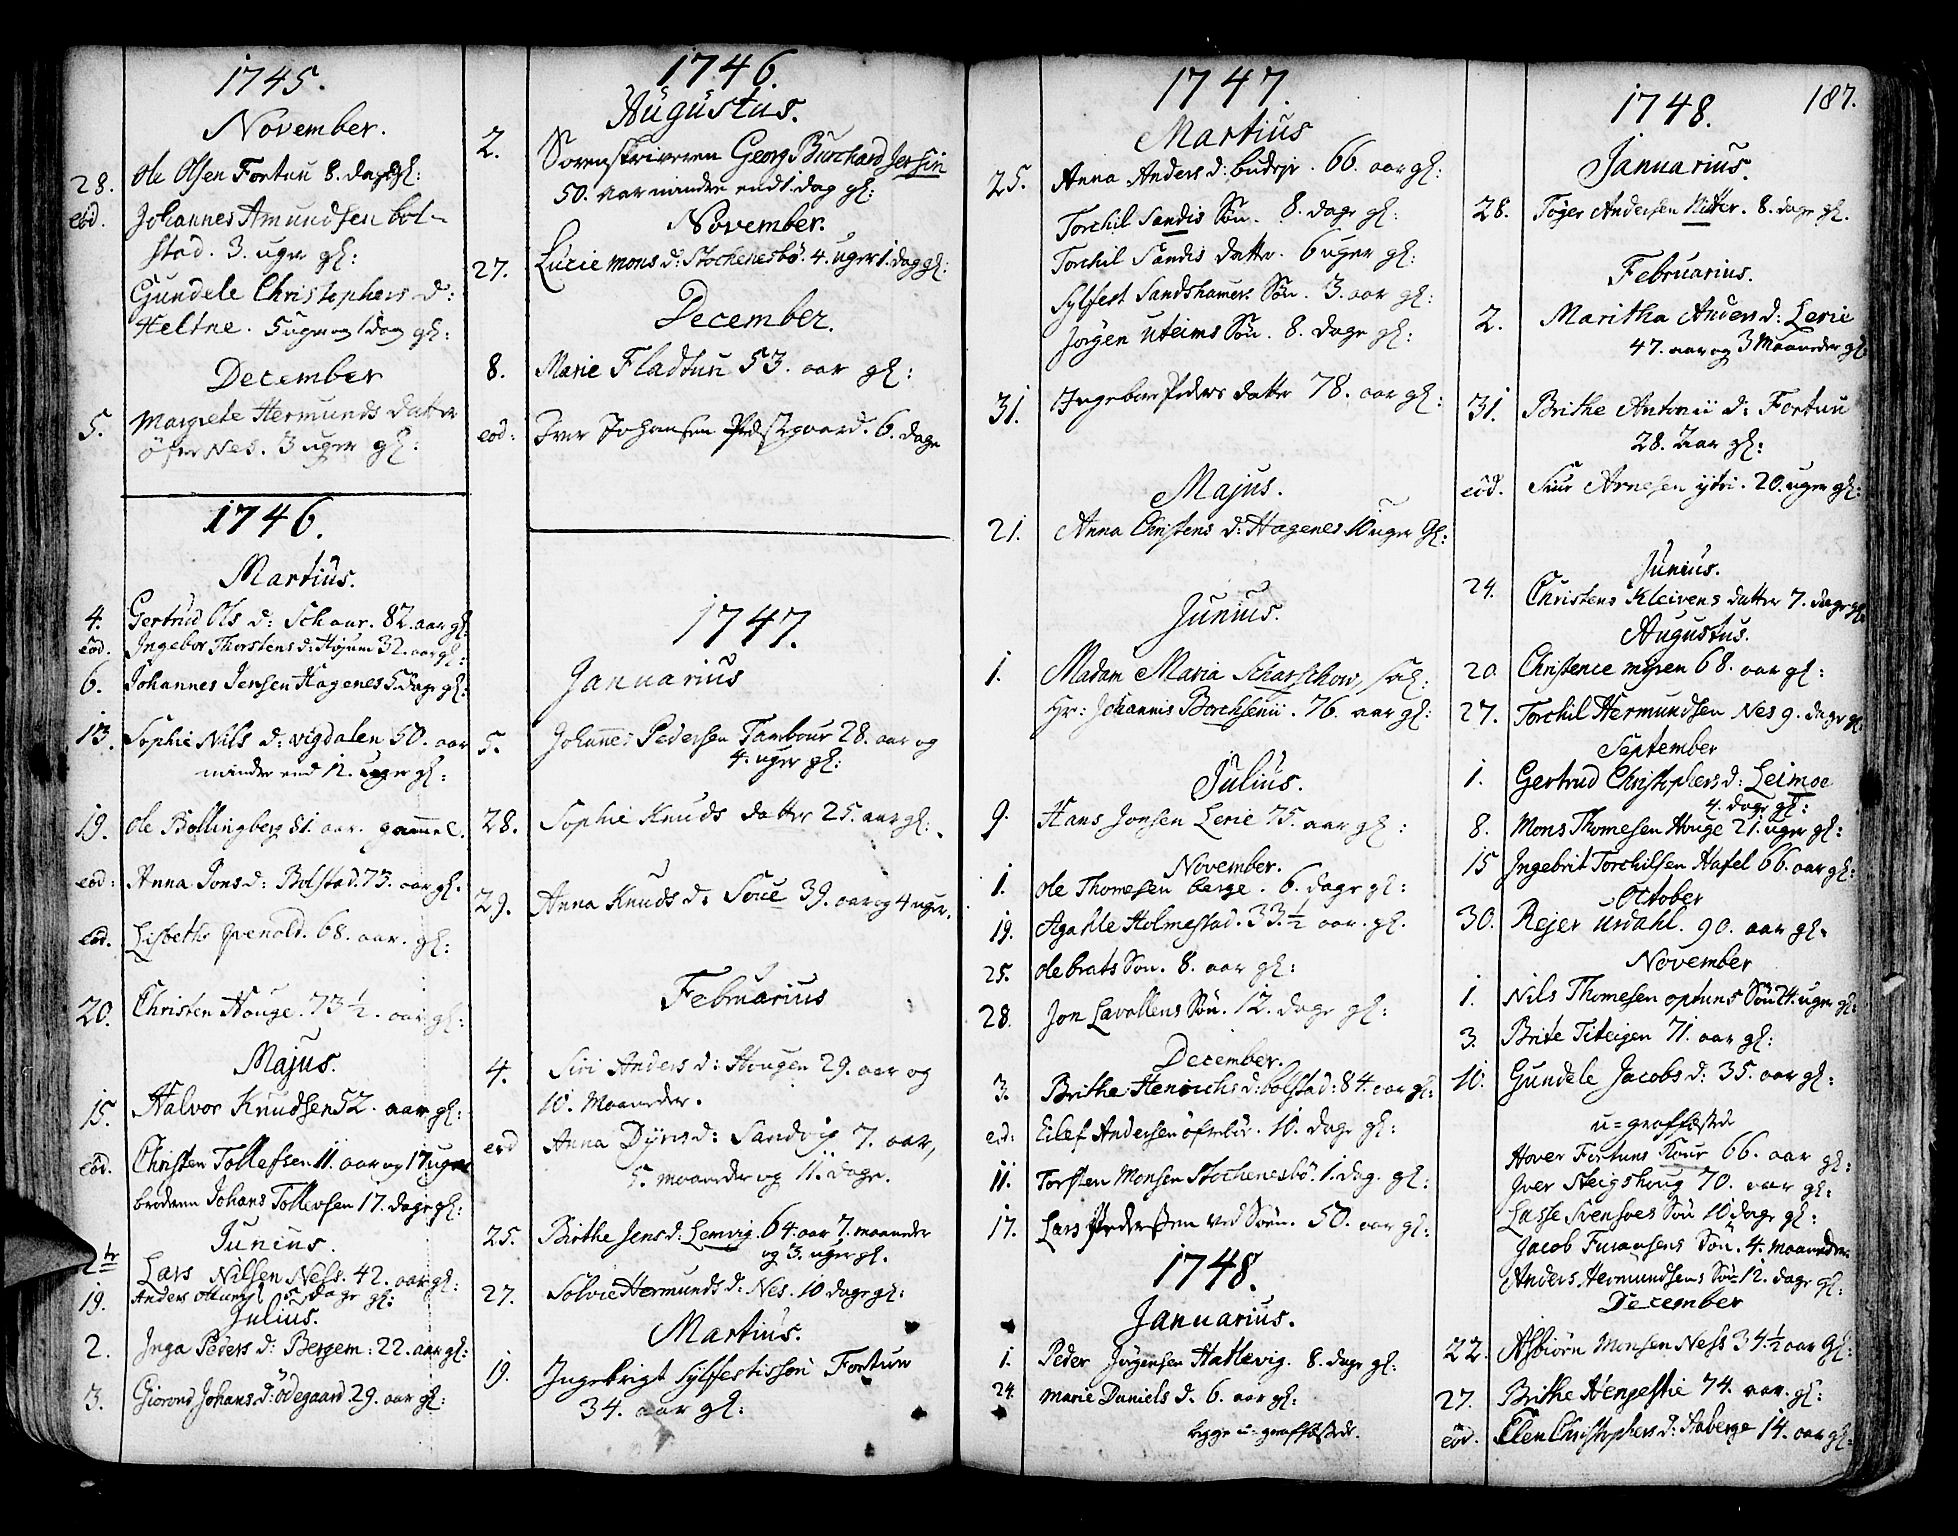 1745.
November.
28. Ole Olsen Fortun 8. dage gl:
eod. Johannes Amundsen bol-
stad. 3. uger gl:
Gundele Christophers d:
Heltne. 5 uger og 1 dag gl:
December
5. Margrete Hermunds datter
øfre Nes. 3 uger gl:
1746.
Martius.
4. Gertrud Ols d: Schaar. 82. aar gl:
eod. Ingebor Thorstens d: Højum 32. aar gl:
6. Johannes Jensen Hagenes 5 dage gl:
13. Sophie Nils d: vigdalen 50. aar
mindre end 12. uger gl:
19. Ole Bollingberg 81. aar. gammel.
eod: Anna Jons d: Bolstad. 73. aar gl.
eod. Lisbeth Qvenold. 68. aar. gl:
20. Christen Houge. 73 1/2. aar gl:
Majus.
15. Halvor Knudsen 52. aar gl:
eod. Christen Tollefsen 11. aar og 17 uger
broderen Johans Tollevsen 17. dage gl:
Junius.
2tr Lars Nilsen Ness. 42. aar gl:
19. Anders 5 dage gl:
Julius.
2. Inga Peders d: Bergem: 22. aar gl:
3. Giorond Johans d: ødegaard 29. aar gl:
1746.
Augustus.
2. Sorenskriveren Georg Burchard Jersin
50. aar mindre end 1. dag gl:
November.
27. Lucie mons d: Stochenesbø. 4. uger 1. dag gl:
December.
8. Marie Fladtun 53. aar gl:
eod: Iver Johansen Prestgaard. 6. dage
1747.
Januarius
5. Johannes Pedersen Tambour 28. aar og
4. uger gl:
28. Sophie Knuds datter 25. aar gl:
29. Anna Knuds d: Sour 39. aar og 4 uger.
Februarius
4. Siri Anders d: Hougen 29. aar og
10. Maaneder.
eod Anna Dyris d: Sandvig 7. aar,
5. maaneder og 11. dage.
25. Birthe Jens d: Lemvig. 64. aar 7. maaneder
og 3. uger gl.
27. Solvie Hermunds d: Nes. 10 dage gl:
Martius.
19. Ingebrigt Sylfestissøn Fortun
34. aar gl:
1747.
Martius
25. Anna Anders d: . 66. aar gl:
Torchil Sandis Søn. 8. dage gl:
Torchil Sandis datter. 6 uger gl:
Sylfest Sandshamers Søn. 3. aar gl:
Jørgen uteims Søn. 8. dage gl:
31. Ingebor Peders datter 78. aar gl:
Majus.
21. Anna Christens d: Hagenes 10 uger gl:
Junius.
1. Madam Maria Scharschow, sal:
Hr: Johannis Borchsenii. 76. aar gl:
Julius.
9. Hans Jonsen Lerie 75. aar gl:
November.
1. Ole Thomesen berge. 6. dage gl:
19. Agathe Holmestad. 33. 1/2 aar. gl.
25. Ole brats Søn. 8. aar gl:
28. Jon Lavollens Søn. 12. dage gl:
December.
3. Brithe Henrichs d: bolstad: 84. aar gl:
eod: Eilef Andersen øfrelid. 10. dage gl:
11. Torsten Monsen Stochenesbø. 1. dag. gl:
17. Lars Pedersen ved Søen. 50. aar gl:
1748.
Januarius.
1. Peder Jørgensen Hatlevig. 8. dage gl:
24. Marie Daniels d. 6. aar gl:
begge u-graffæstede.
187.
1748.
Januarius.
28. Tøger Andersen Nitter. 8. dage gl.
Februarius.
2. Maritha Anders d: Lerie
47. aar og 3 Maaneder gl
31. Brithe Antonii d: Fortun
28. aar gl:
eod. Siur Arnesen ytri. 20. uger gl:
Junius.
24. Christens Kleivens datter 7. dage gl:
Augustus.
20 Christence myren 68. aar gl:
27. Torchil Hermundsen Nes 9. dage gl:
September
1. Gertrud Christophers d: Leimoe
4. dage gl:
8. Mons Thomesen Houge 21. uger gl:
15 Ingebrit Torchilsen Hafsl 66. aar gl:
October
30. Rejer Urdahl. 90. aar gl.
November
1. Nils Thomesen optuns Søn 24. uger gl:
3. Brite Titeigen 71. aar gl:
10. Gundele Jacobs d: 35. aar gl:
u-graffæstede
Hover Fortuns Kone 66. aar gl:
Iver Steigshoug 70. aar gl:
Lasse Svensøes Søn 10 dage gl:
Jacob Furaasens Søn. 4. maaneder
Anders Hermundsens Søn 12. dage gl:
December
22. Asbiørn Monsen Ness 34 1/2 aar gl:
27. Brithe Hengestie 74. aar. gl:
eod. Elen Christophers d: Aaberge 14. aar gl: